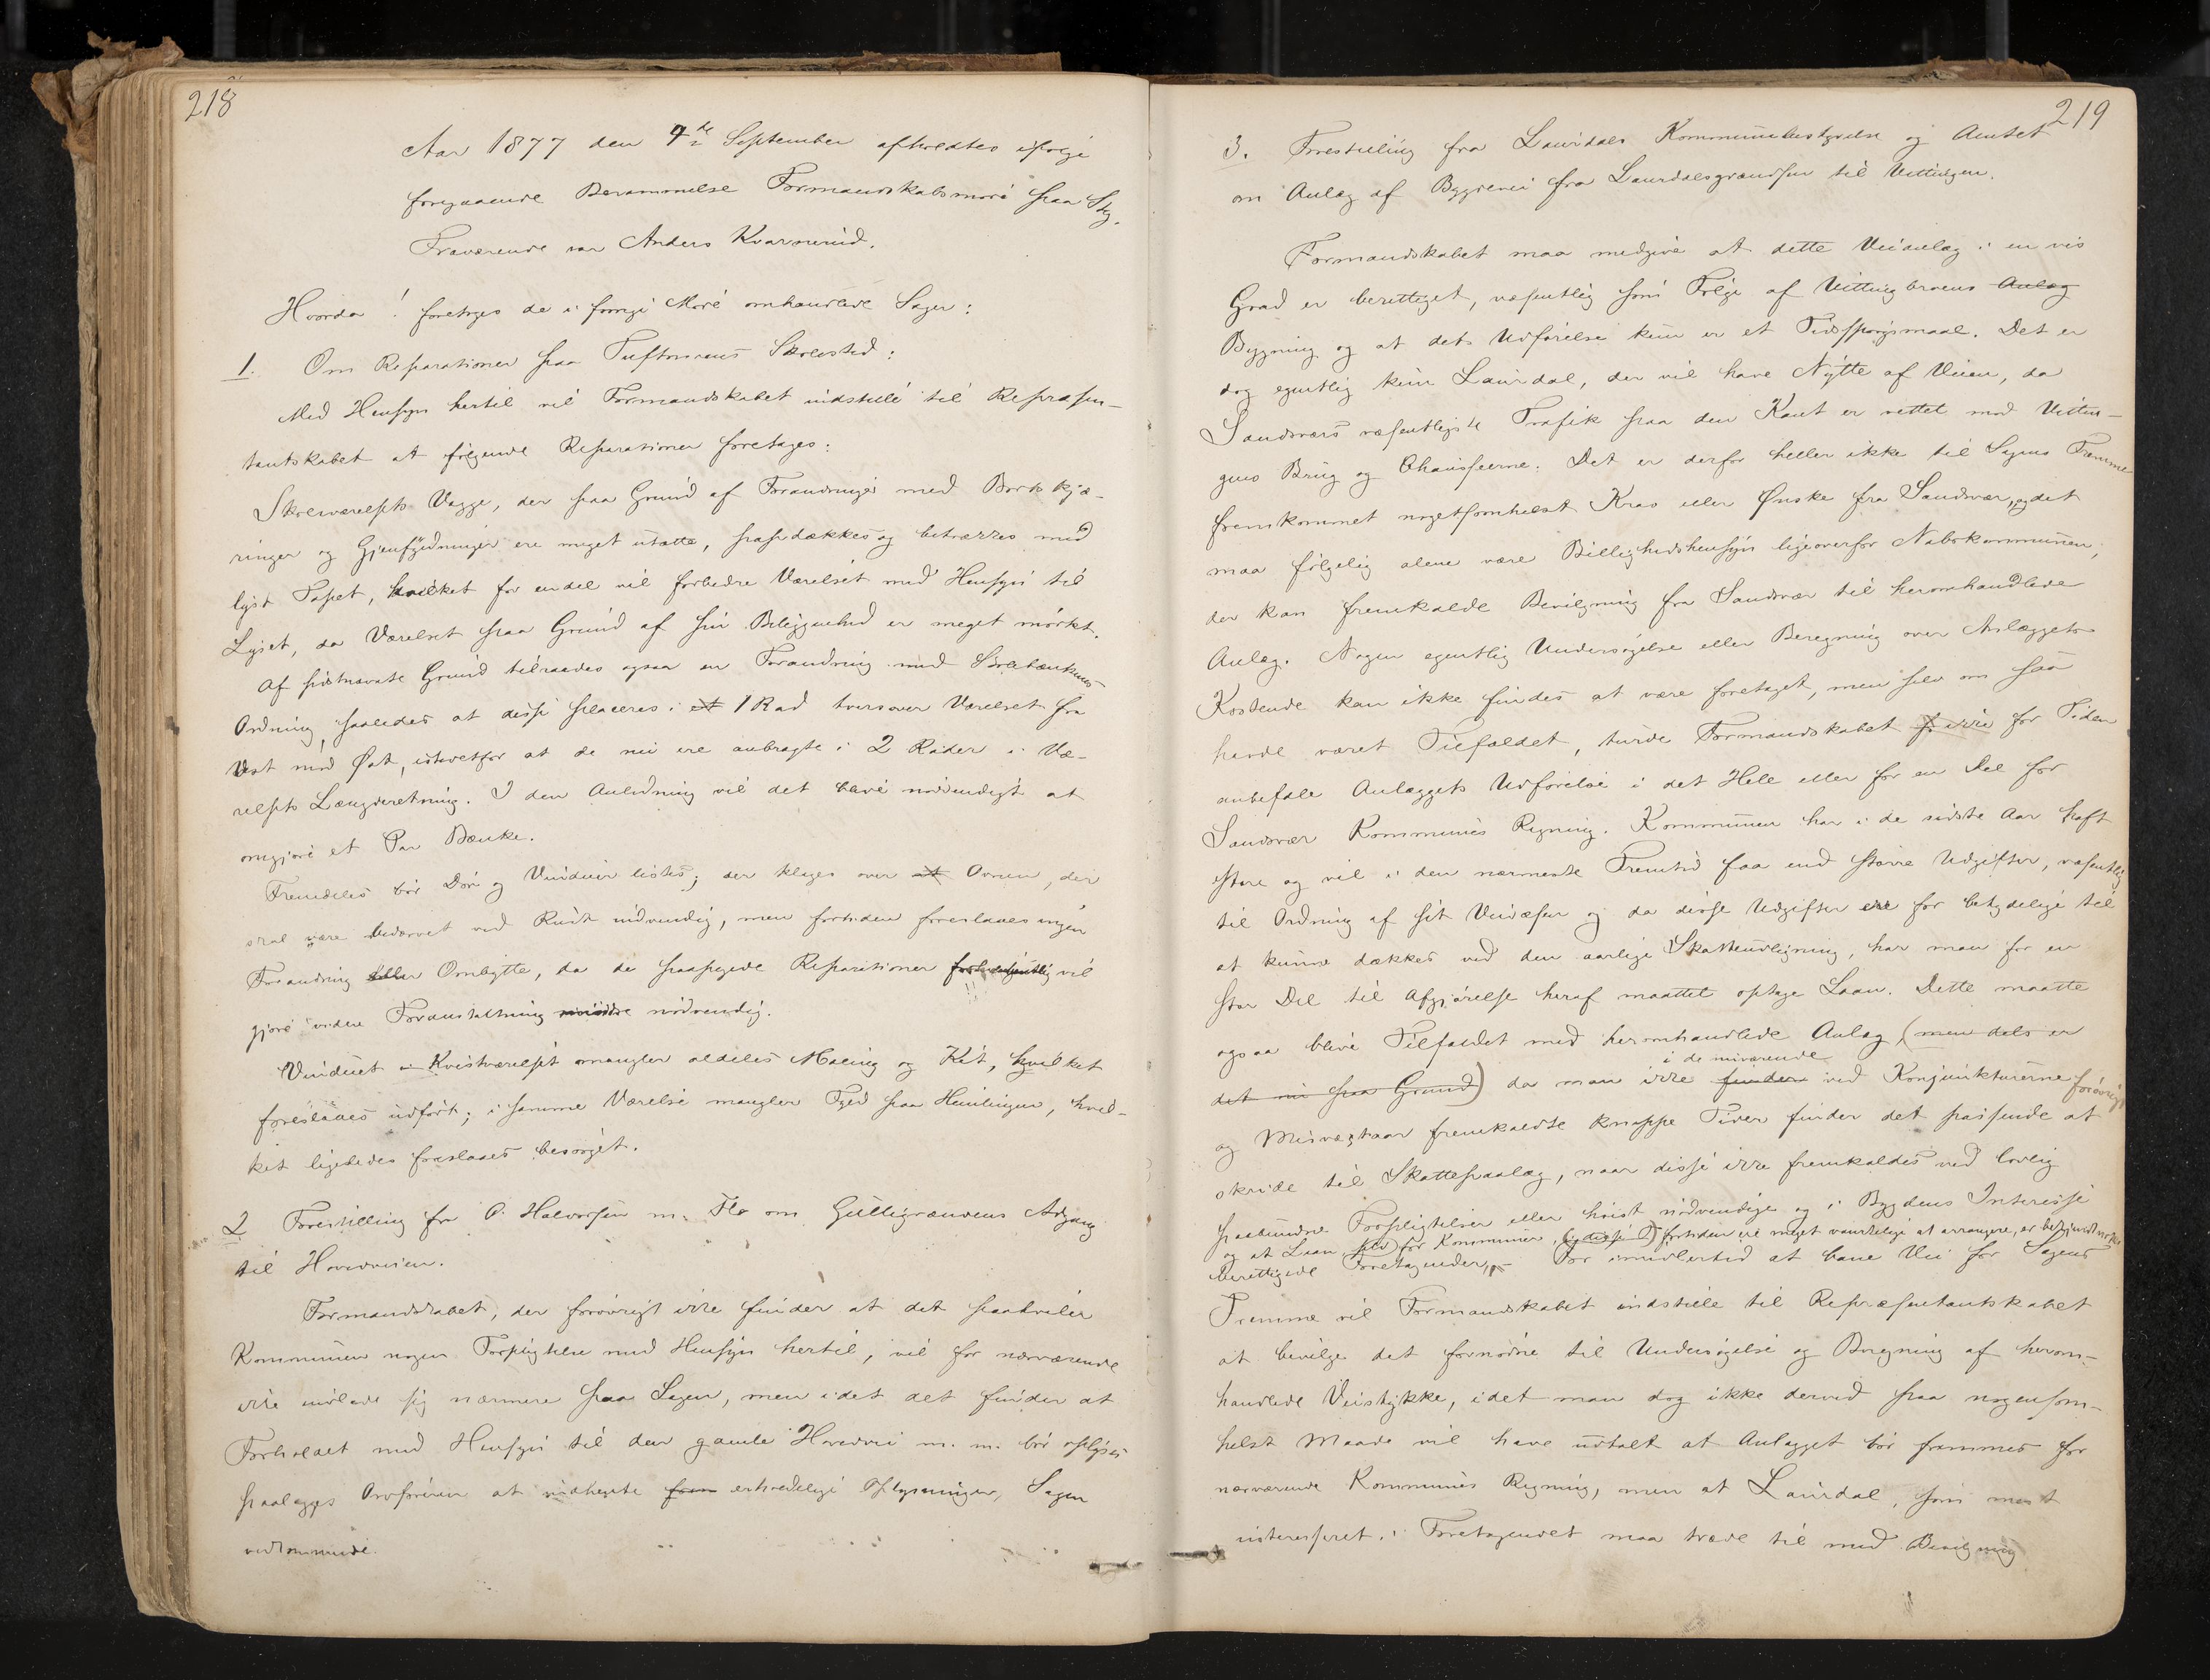 218
Aar 1877 den 4de September afholdtes ifølge
foregaaende Berammelse Formandskabsmøde paa Sky.
Fraværende var Anders Kvarnerud.
Hvorda! foretoges de i forrige Møde omhandlede Sager:
1. Om Reparationer paa Skolested:
Med Hensyn hertil vil Formandskabet indstille til Repræsen-
tantskabet at følgende Reparationer foretages:
Skoleværelsets Vægge, der paa Grund af Forandringer med
ringer og ere meget udsatte, og betrækkes med
lyst Tapet, hvilket for endel vil forbedre Værelset med Hensyn til
Lyset, da Værelset paa Grund af sin Beliggenhed er meget mørkt.
Af sidstnævnte Grund tilraades ogsaa en Forandring med Skolebænkenes
Ordning, saaledes at disse placeres i et 1 Rad tversover Værelset fra
Vest mod Øst, istedetfor at de nu ere anbragte i 2 Rader i Væ-
relsets Længderetning. I den Anledning vil det blive nødvendigt at
omgjøre et Par Bænke.
Fremdeles bør Dør og Vinduer listes; der klages over at Ovnen, der
skal være bedærvet ved Rust indvendig, men fortiden foreslaaes ingen
Forandring eller Ombytte, da de paapegede Reparationer forhaabentlig vil
gjøre videre Foranstaltning mindre nødvendig.
Vinduet i Kvistværelset mangler aldeles Maling og Kit, hvilket
foreslaaes udført; i samme Værelse mangler Fyld paa Himlingen, hvil-
ket ligeledes foreslaaes besørget.
2 Forestilling fra O. Halvorsen m. Flo om Gulligrændens Adgang
til Hovedveien.
Formandskabet, der forøvrigt ikke finder at det paahviler
Kommunen nogen Forpligtelse med Hensyn hertil, vil for nærværende
ikke indlade sig nærmere paa Sagen, men idet det finder at
Forholdet med Hensyn til den gamle Hovedvei m. m. bør oplyses
paalægges Ordføreren at indhente fore erholdelige Oplysninger, Sagen
vedkommende.
219
3. Forestilling fra Laurdals Kommunebestyrelse og Amtet
om Anlæg af Bygdevei fra Laurdalsgrændsen til Vittingen.
Formandskabet maa medgive at dette Veianlæg i en vis
Grad er berettiget, væsentlig som Følge af Vittingbroens Anlæg
Bygning og at dets Udførelse kun er et Tidsspørgsmaal. Det er
dog egentlig kun Laurdal, der vil have Nytte af Veien, da
Sandsværs væsentligste Trafik paa den Kant er rettet mod Vittin-
gens Brug og Chausseerne. Det er derfor heller ikke til Sagens Fremme
fremkommet nogetsomhelst Krav eller Ønske fra Sandsvær, og det
maa følgelig alene være Billighedshensyn ligeoverfor Nabokommunen,
der kan fremkalde Bevilgning fra Sandsvær til heromhandlede
Anlæg. Nogen egentlig Undersøgelse eller Beregning over Anlæggets
Kostende kan ikke findes at være foretaget, men selv om saa
havde været Tilfældet, turde Formandskabet ikke for Tiden
anbefale Anlæggets Udførelse i det Hele eller for en Del for
Sandsvær Kommunes Regning. Kommunen har i de sidste Aar haft
store og vil i den nærmeste Fremtid faa end større Udgifter, væsentlig
til Ordning af sit Veivæsen og da disse Udgifter ere for betydelige til
at kunne dækkes ved den aarlige Skatteudligning, har man for en
stor Del til Afgjørelse heraf maattet optage Laan. Dette maatte
ogsaa blive Tilfældet med heromhandlede Anlæg, (men dels er
det nu paa Grund) da man ikke finder i de nuværende ved Konjunkturerne forøvrigt
og Misvæxtaar fremkaldte knappe Tider finder det passende at
skride til Skattepaalæg, naar disse ikke fremkaldes ved lovlig
paabudne Forpligtelser eller høist nødvendige og i Bygdens Interesse
og at Laan selv for Kommunen, fortiden ere meget vanskelige at arrangere, er bekjendt nok
berettigede Foretagender, – For imidlertid at bane Vei for Sagens
Fremme vil Formandskabet indstille til Repræsentantskabet
at bevilge det fornødne til Undersøgelse og Beregning af herom-
handlede Veistykke, idet man dog ikke derved paa nogensom-
helst Maade vil have udtalt at Anlægget bør fremmes for
nærværende Kommunes Regning, men at Laurdal, som mest
interesseret i Foretagendet maa træde til med Bevilgning